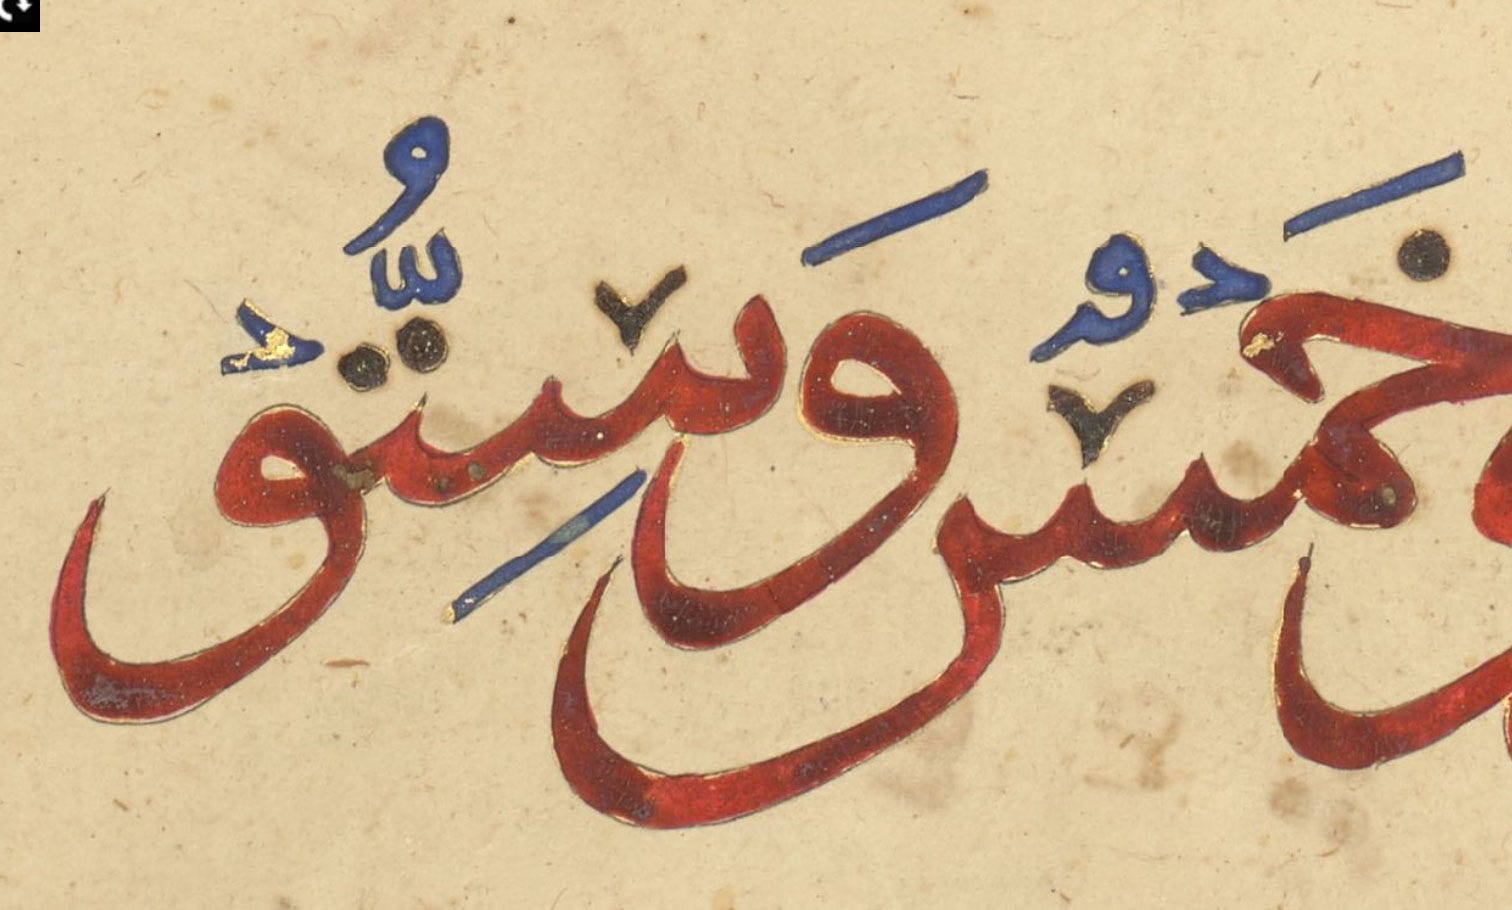 خَمْسٌ وَسِتُّوْ